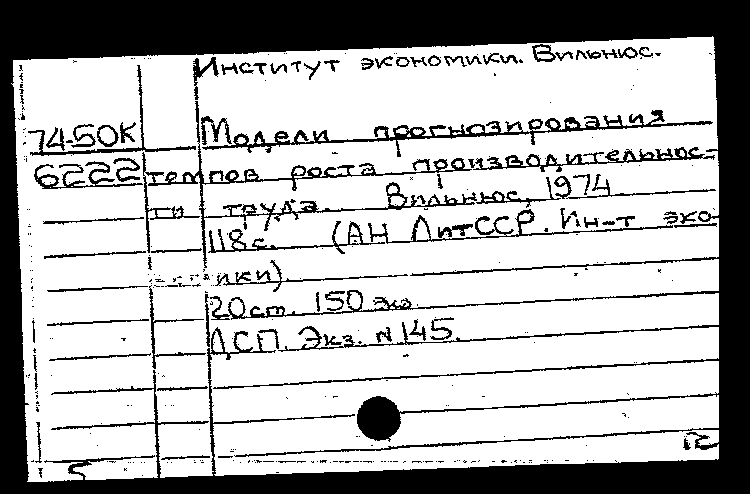 Институт экономики. Вильнюс.
74-50К Модели прогнозирования
6222 темпов роста производительнос-
ти труда. Вильнюс, 1974
118с. (АН ЛитССР. Ин-т эко-
номики)
20см. 150 экз
ДСП. Экз. N145.